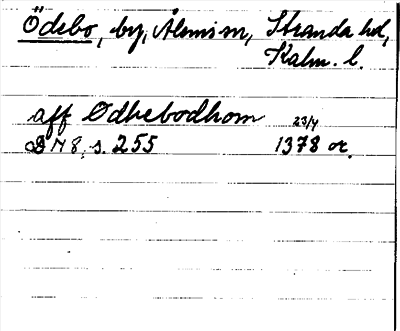 Ödebo, by, Ålems sn, Stranda hd,
Kalm. l.
aff Ødhebodhom 23/4
S N 8, s. 255 1378 or.